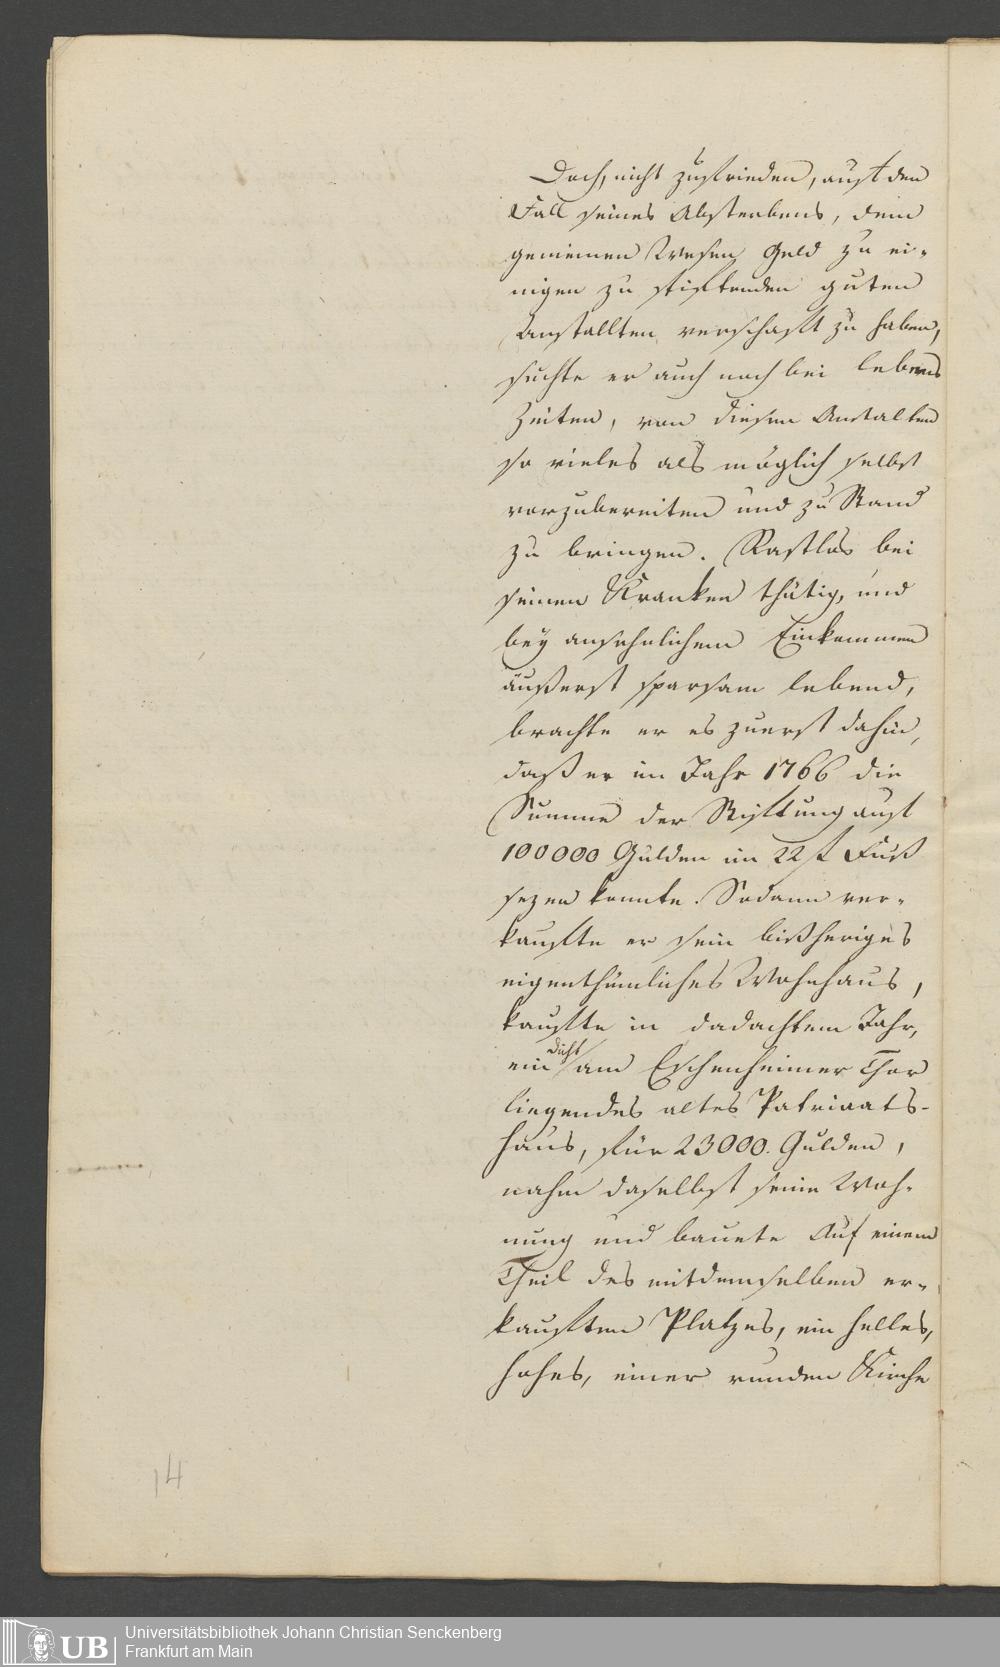 Doch, nicht zufrieden, auf den
Fall seines Absterbens, dem
gemeinen Wesen Geld zu ei-
nigen zu stiftenden guten
Anstallten verschafft zu haben,
suchte er auch noch bei lebens
Zeiten, von diesen Anstalten
so vieles als möglich selbst
vorzubereiten und zu Stand
zu bringen. Rastlos bei
seinen Kranken thätig, und
bey ansehnlichem Einkommen
äußerst sparsam lebend,
brachte er es zuerst dahin,
daß er im Jahr 1766 die
Summe der Stiftung auf
100000 Gulden im 22 f Fuß
sezen konnte. Sodann ver-
kaufte er sein bißheriges
eigenthümliches Wohnhaus,
kaufte in dadachtem Jahr,
ein dicht am Eschenheimer Thor
liegendes altes Patriaats-
haus, für 23000. Gulden,
nahm daselbst seine Woh-
nung und bauete Auf einem
Theil des mitdemselben er-
kauften Platzes, ein helles,
hohes, einer runden Kirche
14
UB
Universitätsbibliothek Johann Christian Senckenberg
Frankfurt am Main